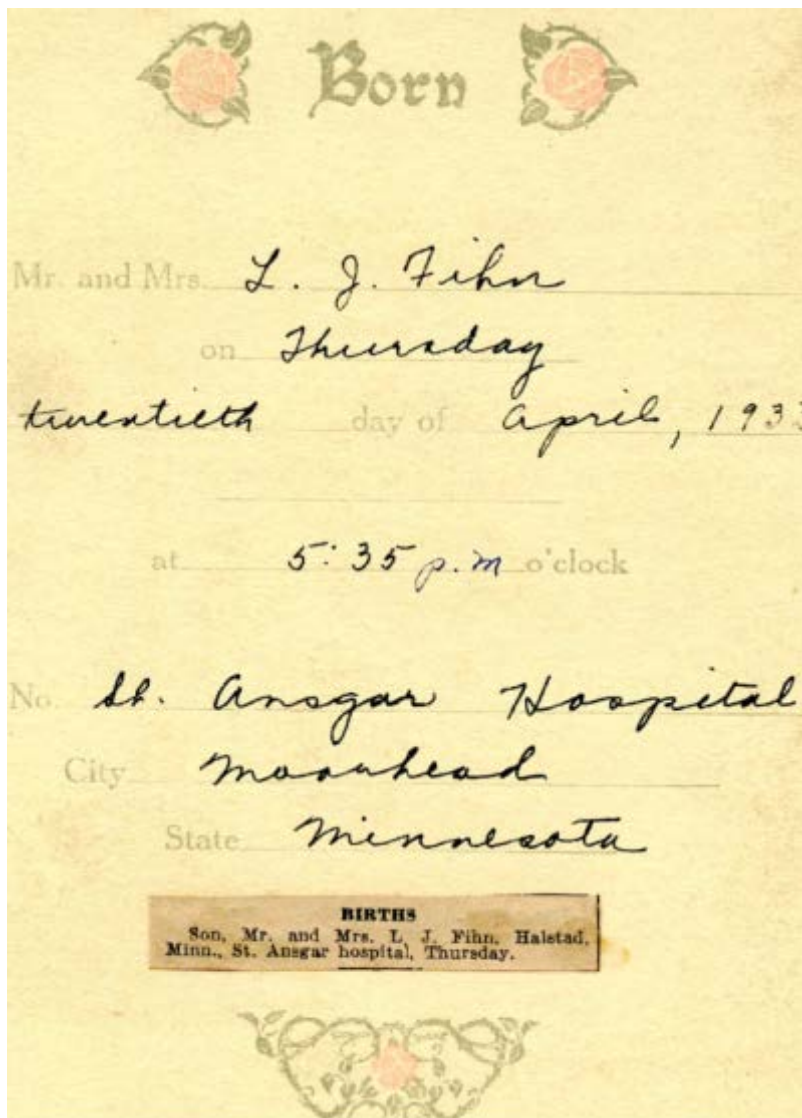 Born
Mr. and Mrs. L. J. Fihn
on Thursday
twentieth day of April, 1933
at 5:35 p.m o'clock
No. St. Ansgar Hospital
City Moorhead
State Minnesota
BIRTHS
Son, Mr. and Mrs. L. J. Fihn, Halstad,
Minn., St. Ansgar hospital, Thursday.